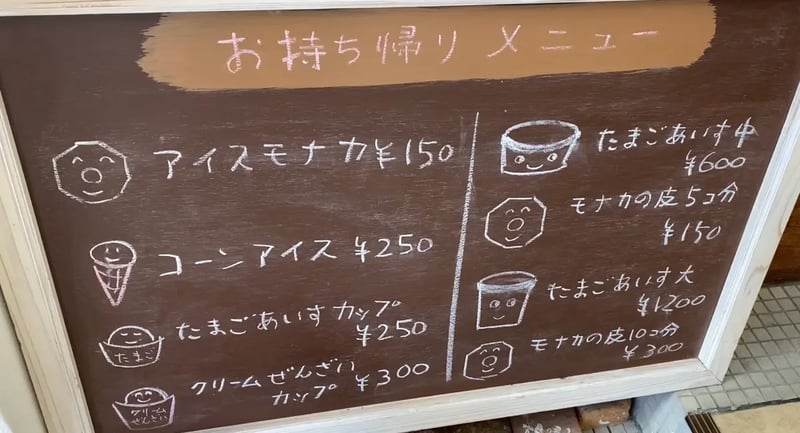 お持ち帰り メニュー
アイスモナカ ¥150
コーンアイス ¥250
たまごあいす カップ
¥250
たまご
クリームぜんざい
カップ ¥300
クリーム
ぜんざい
たまごあいす 中
¥600
モナカの皮 5コ分
¥150
たまごあいす 大
¥1200
モナカの皮 10コ分
¥300